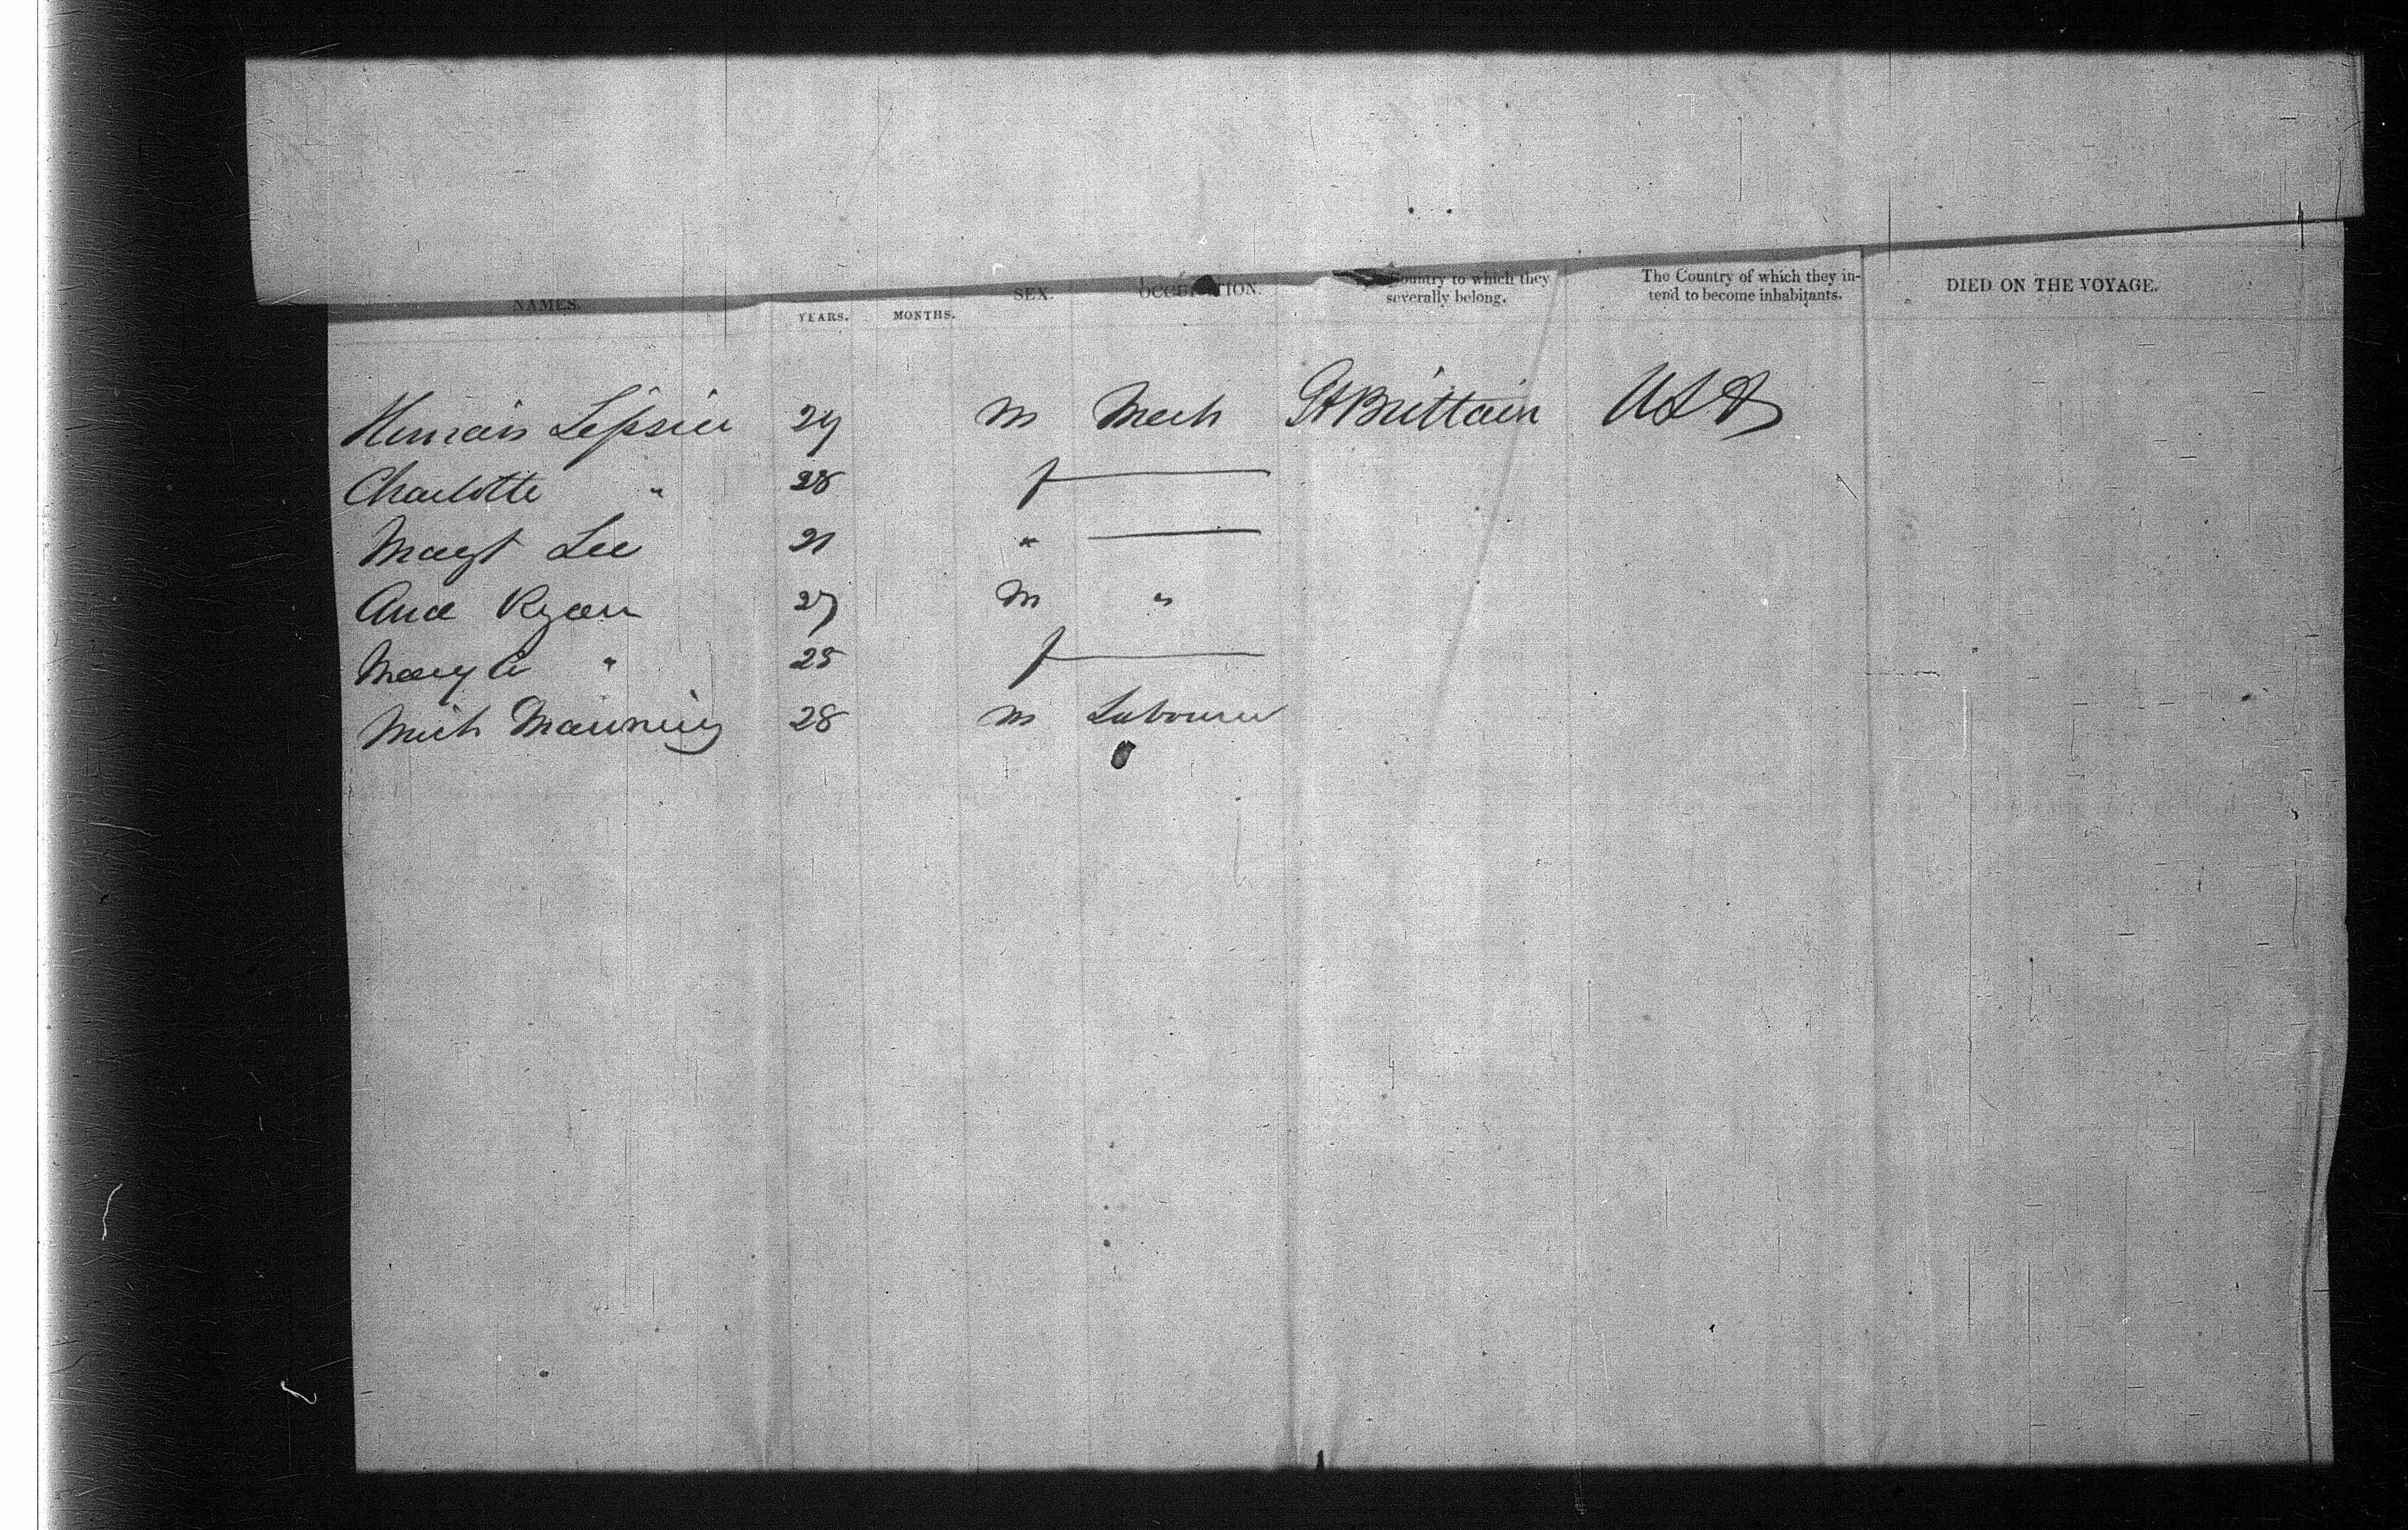 NAMES. YEARS. MONTHS. SEX. OCCUPATION. Country to which they severally belong. The Country of which they intend to become inhabitants. DIED ON THE VOYAGE.
29 m Mech Gt Brittain USA
Charlotte " 28 f
Margt Lee 21 "
Ryan 27 m "
Mary A " 25 f
Mich Manning 28 m Labourer